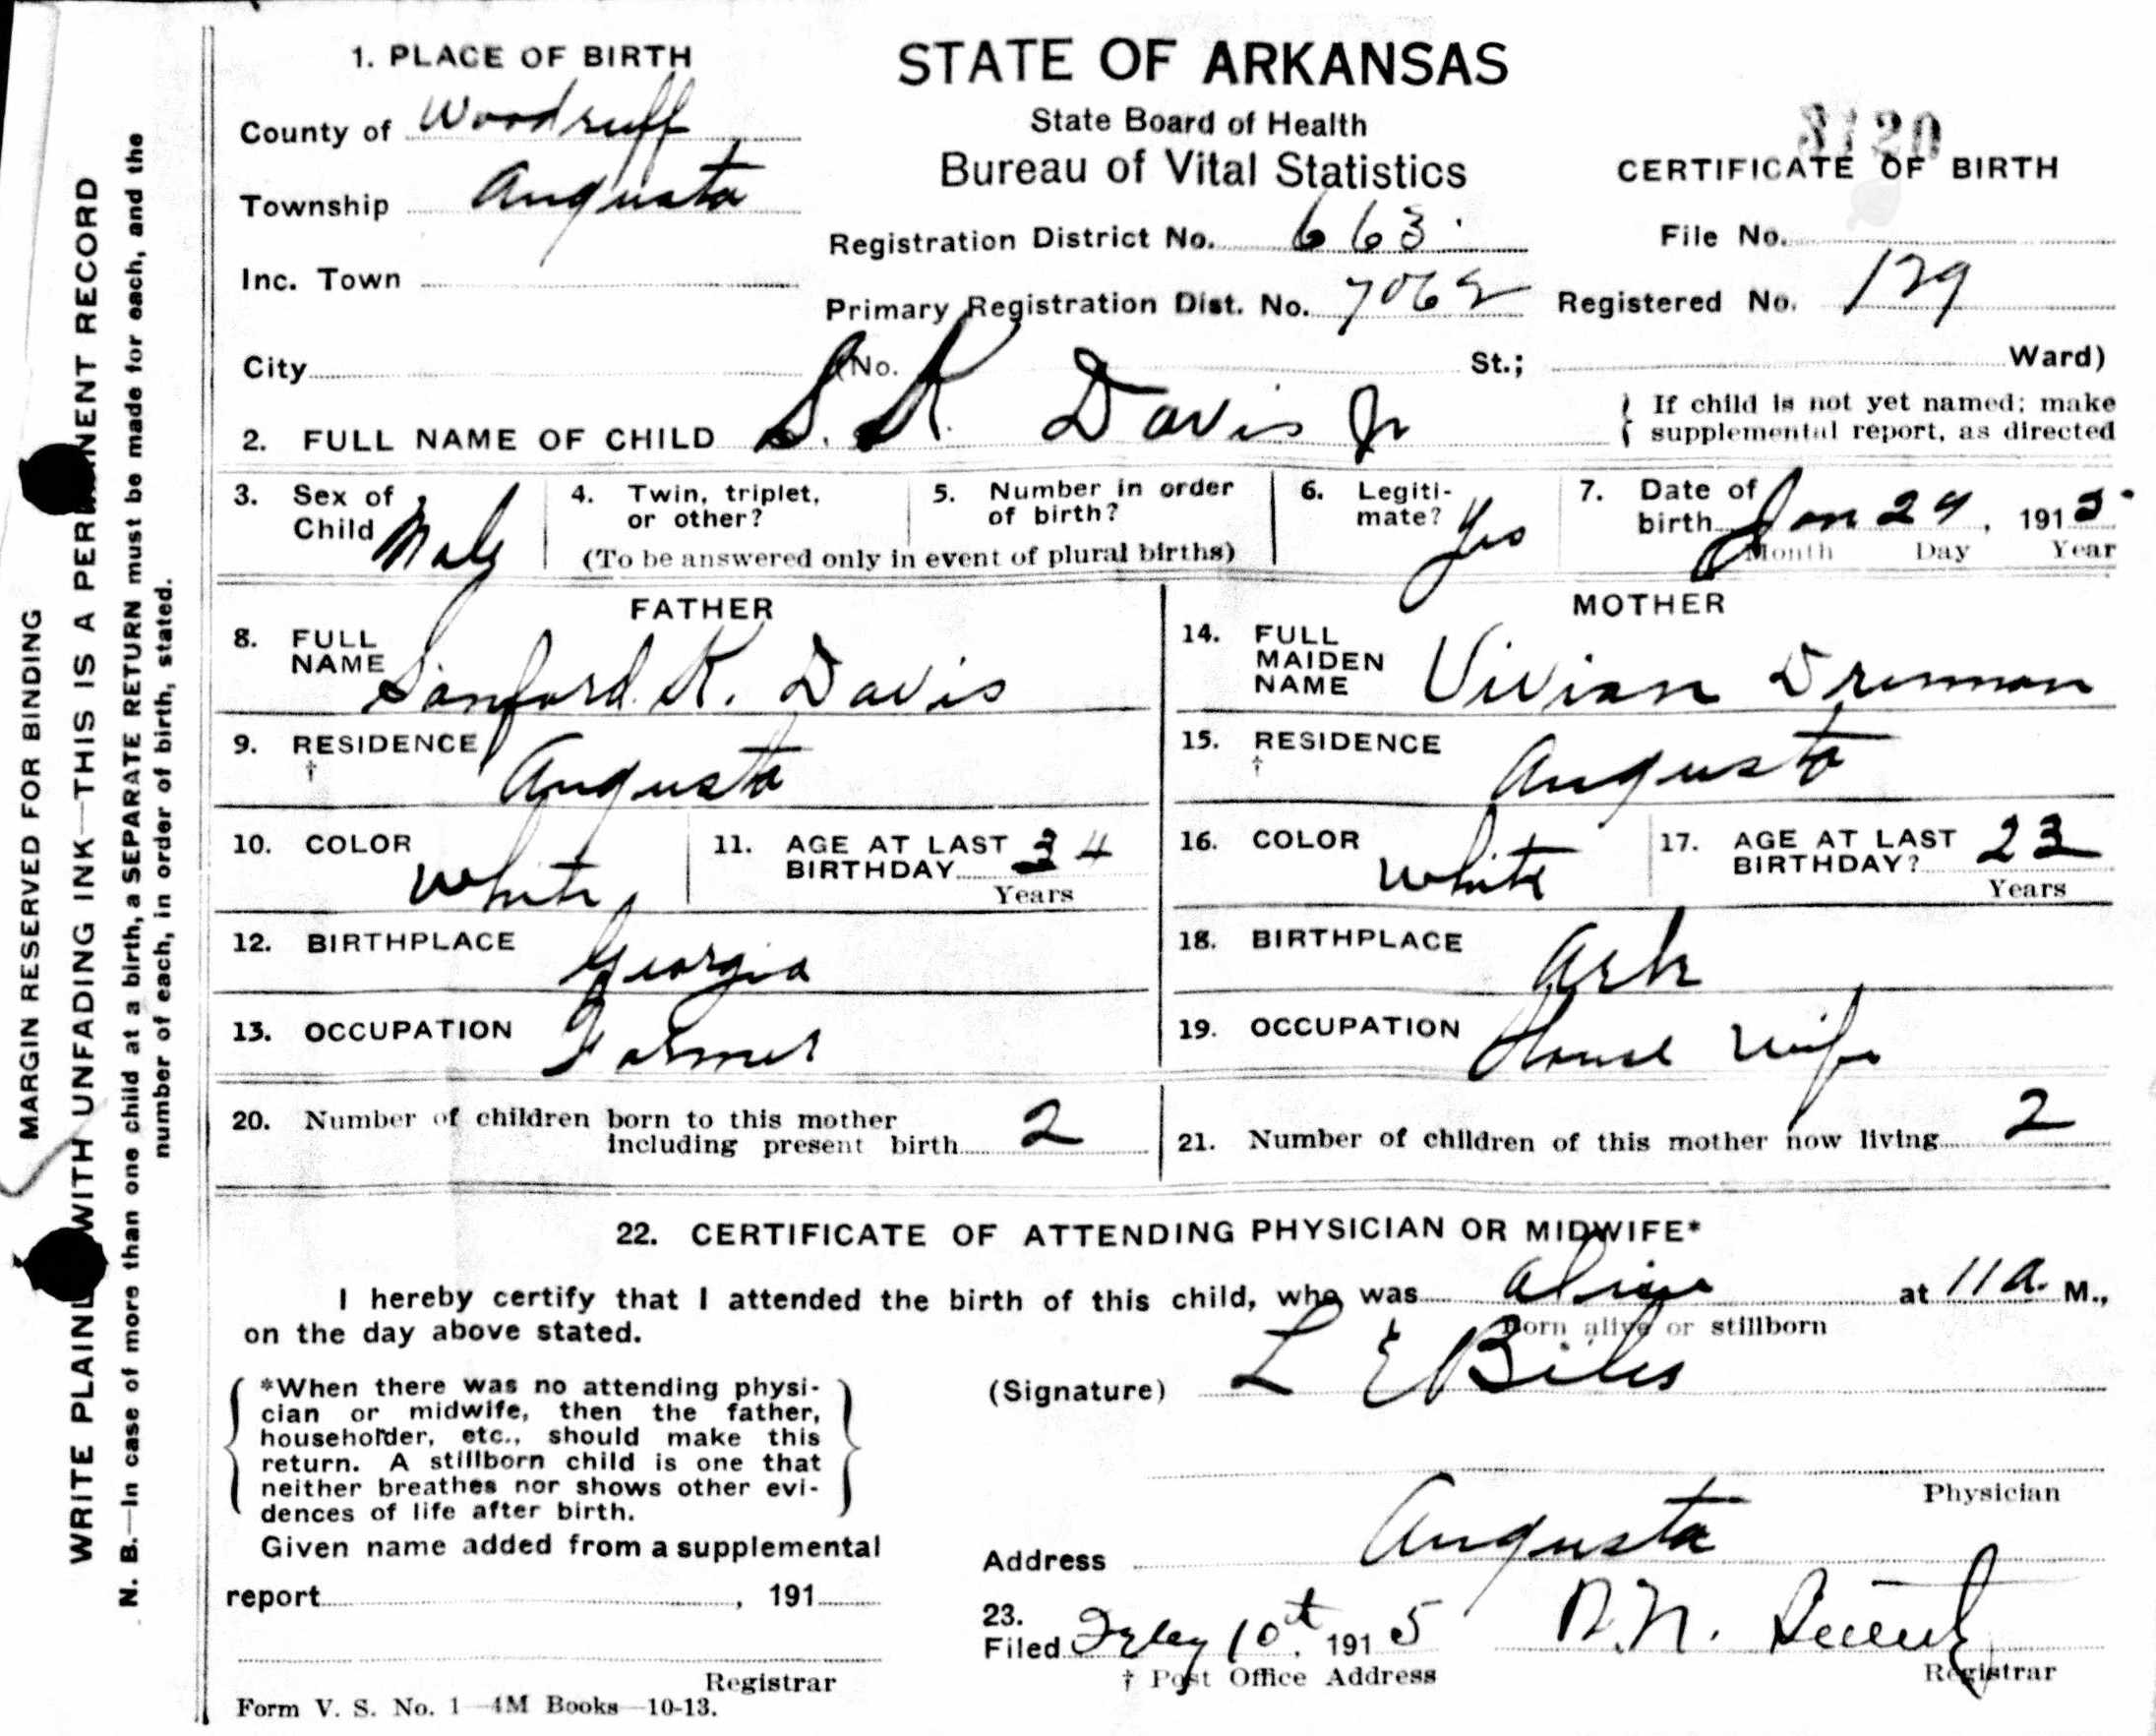 1. PLACE OF BIRTH
County of Woodruff
Township Augusta
Inc. Town
STATE OF ARKANSAS
State Board of Health
Bureau of Vital Statistics
Registration District No. 663.
Primary Registration Dist. No. 7062
3120
CERTIFICATE OF BIRTH
File No.
Registered No. 129
City (No. St.; Ward)
2. FULL NAME OF CHILD S. K. Davis Jr
If child is not yet named; make
supplemental report, as directed
3. Sex of Child Male
4. Twin, triplet, or other?
5. Number in order of birth?
(To be answered only in event of plural births)
6. Legitimate? Yes
7. Date of birth Jan 24, 1915
Month Day Year
FATHER
8. FULL NAME Sanford K. Davis
9. RESIDENCE † Augusta
10. COLOR White
11. AGE AT LAST BIRTHDAY 34
Years
12. BIRTHPLACE Georgia
13. OCCUPATION Farmer
MOTHER
14. FULL MAIDEN NAME Vivian Drennan
15. RESIDENCE † Augusta
16. COLOR White
17. AGE AT LAST BIRTHDAY? 23
Years
18. BIRTHPLACE Ark
19. OCCUPATION House Wife
20. Number of children born to this mother
including present birth 2
21. Number of children of this mother now living 2
22. CERTIFICATE OF ATTENDING PHYSICIAN OR MIDWIFE*
I hereby certify that I attended the birth of this child, who was alive at 11 a. M.,
Born alive or stillborn
on the day above stated.
(Signature) L E Biles
Physician
*When there was no attending physi-
cian or midwife, then the father,
householder, etc., should make this
return. A stillborn child is one that
neither breathes nor shows other evi-
dences of life after birth.
Given name added from a supplemental
report , 191
Registrar
Address Augusta
23.
Filed 10th, 1915
Registrar
† Post Office Address
Form V. S. No. 1—4M Books—10-13.
MARGIN RESERVED FOR BINDING
WRITE PLAINLY WITH UNFADING INK—THIS IS A PERMANENT RECORD
N. B.—In case of more than one child at a birth, a SEPARATE RETURN must be made for each, and the
number of each, in order of birth, stated.